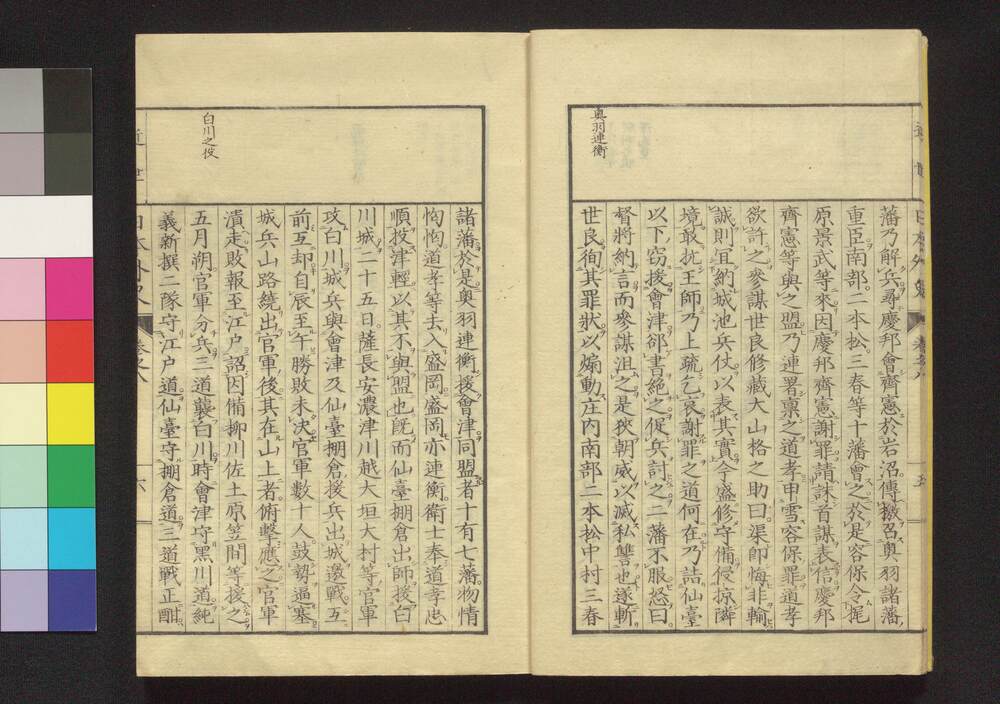 奥羽連衡
藩乃解兵尋慶邦會齊憲於岩沼傳檄召奧羽諸藩
重臣南部二本松三春等十藩會之於是容保令梶
原景武等來因慶邦齊憲謝罪請誅首謀表信慶邦
齊憲等與之盟乃連署稟之道孝甲雪容保罪道孝
欲許之參謀世良修藏大山格之助曰渠卽悔非輸
誠則宜納城池兵仗以表其實今盛修守備侵掠隣
境敢抗王師乃上疏乞哀謝罪之道何在乃詰仙臺
以下窃援會津郤書絕之促兵討之二藩不服怒曰
督將納言而參謀沮之是挾朝威以滅私讐也遂斬
世良徇其罪狀以煽動庄内南部二本松中村三春
白川之役
諸藩於是奧羽連衡援會津同盟者十有七藩物情
恟恟道孝等去入盛岡盛岡亦連衡衛士奉道孝忠
順投津輕以其不與盟也旣而仙臺棚倉出師援白
川城二十五日薩長安濃津川越大垣大村等官軍
攻白川城兵與會津及仙臺棚倉援兵出城邀戰互
前互却自辰至午勝敗未決官軍數十人鼓勢逼塞
城兵山路繞出官軍後其在山上者俯擊應之官軍
潰走敗報至江戸詔因備柳川佐土原笠間等援之
五月朔官軍分兵三道襲白川時會津守黑川道純
義新撰二隊守江戸道仙臺守棚倉道三道戰正酣
日本外史
卷之八
六